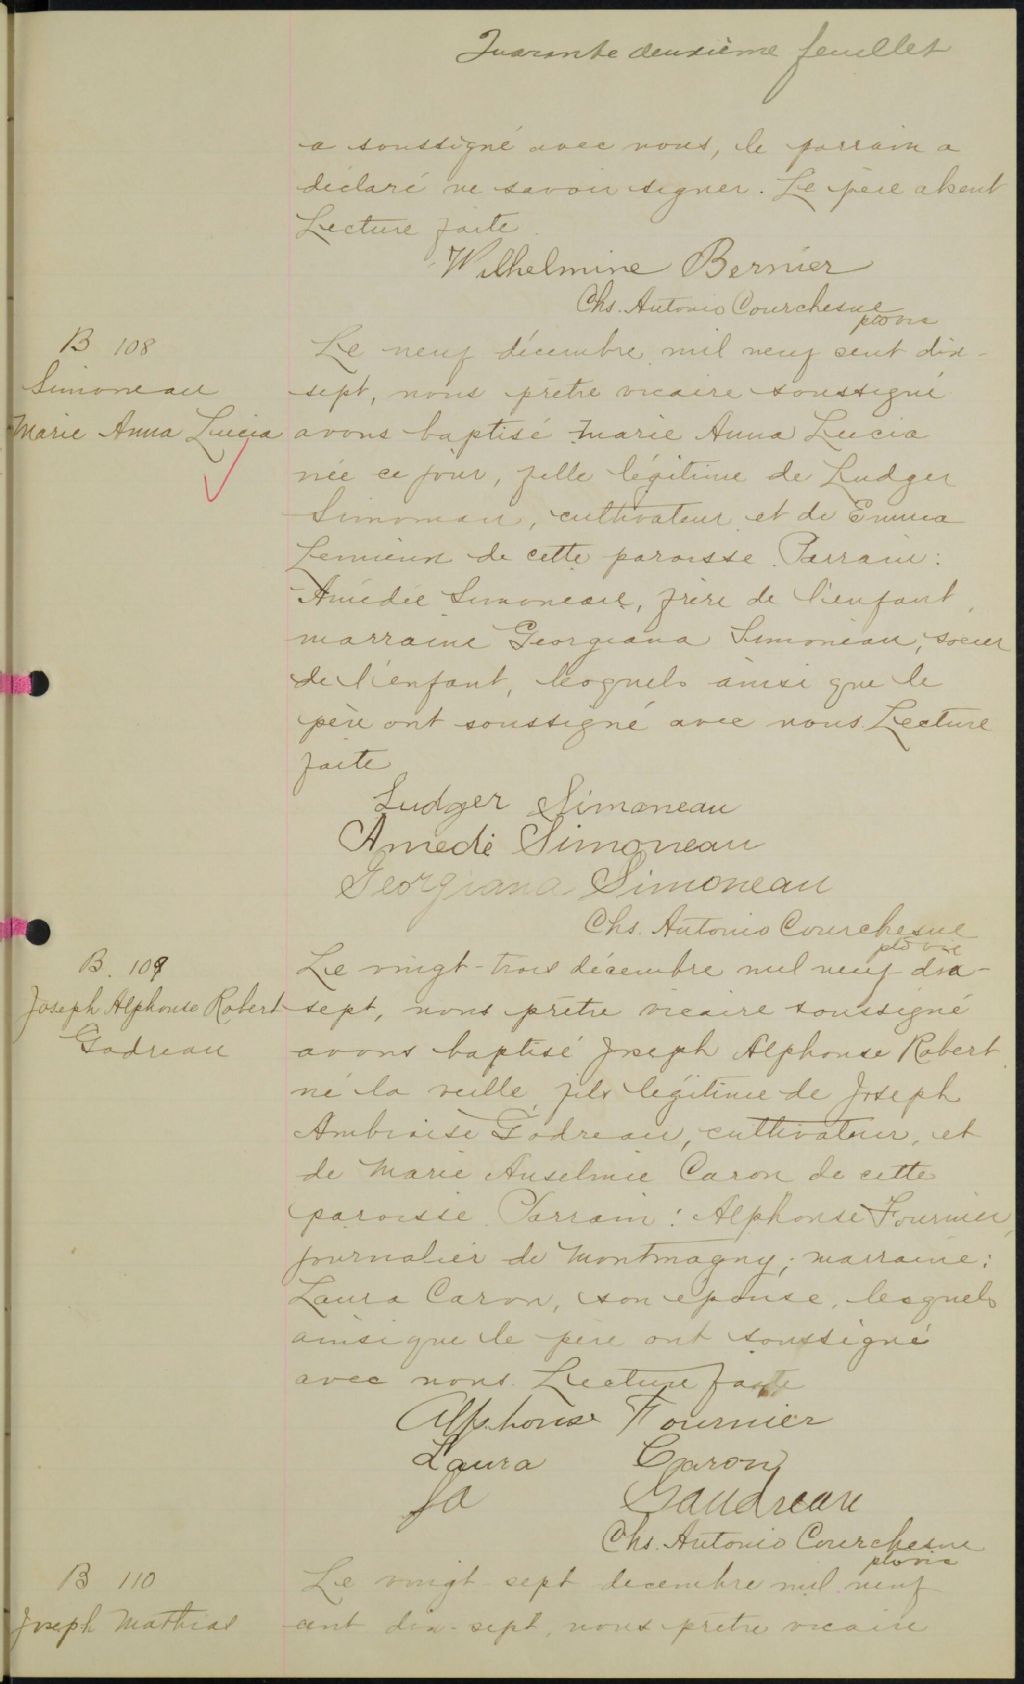 Quarante deuxième feuillet
a soussigné avec nous, le parrain a
déclaré ne savoir signer. Le père absent
Lecture faite.
Wilhelmine Bernier
Chs. Antonio Courchesne
ptre vic
B 108
Simoneau
Marie Anna Lucia
Le neuf décembre mil neuf cent dix-
sept, nous prêtre vicaire soussigné
avons baptisé Marie Anna Lucia
née ce jour, fille légitime de Ludger
Simoneau, cultivateur et de Emma
Lemieux de cette paroisse. Parrain:
Amédée Simoneau, frère de l'enfant,
marraine Georgiana Simoneau, soeur
de l'enfant, lesquels ainsi que le
père ont soussigné avec nous. Lecture
faite
Ludger Simoneau
Amedé Simoneau
Georgiana Simoneau
Chs. Antonio Courchesne
ptre vic
B. 109
Joseph Alphonse Robert
Godreau
Le vingt-trois décembre mil neuf dix-
sept, nous prêtre vicaire soussigné
avons baptisé Joseph Alphonse Robert
né la veille, fils légitime de Joseph
Ambroise Godreau, cultivateur, et
de Marie Anselmie Caron de cette
paroisse. Parrain: Alphonse Fournier,
journalier de Montmagny; marraine:
Laura Caron, son epouse, lesquels
ainsi que le père ont soussigné
avec nous. Lecture faite
Alphonse Fournier
Laura Caron
Jo Gaudreau
Chs. Antonio Courchesne
ptre vic
B 110
Joseph Mathias
Le vingt-sept decembre mil neuf
cent dix-sept, nous prêtre vicaire